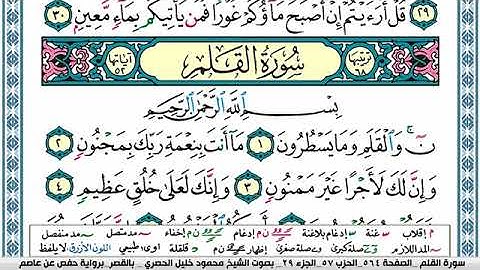 قُلْ أَرَءَيْتُمْ إِنْ أَصْبَحَ مَآؤُكُمْ غَوْرًا فَمَن يَأْتِيكُم بِمَآءٍ مَّعِينٍۭ ٣٠
ترتيبها ٦٨ سُورَةُ القَلَمِ آياتها ٥٢
بِسْمِ ٱللَّهِ ٱلرَّحْمَٰنِ ٱلرَّحِيمِ
نٓ ۚ وَٱلْقَلَمِ وَمَا يَسْطُرُونَ ١ مَآ أَنتَ بِنِعْمَةِ رَبِّكَ بِمَجْنُونٍ ٢
وَإِنَّ لَكَ لَأَجْرًا غَيْرَ مَمْنُونٍ ٣ وَإِنَّكَ لَعَلَىٰ خُلُقٍ عَظِيمٍ ٤
م إقلاب غنة إدغام بلاغنة إدغام ن م إخفاء مد متصل مد منفصل
المد اللازم صلة كبرى صلة صغرى إظهار ن م قلقلة اوى طبيعي اللون الأزرق لا يلفظ
سورة القلم _ الصفحة ٥٦٤ _ الحزب ٥٧ _ الجزء ٢٩ _ بصوت الشيخ محمود خليل الحصري _ بالقصر_ برواية حفص عن عاصم